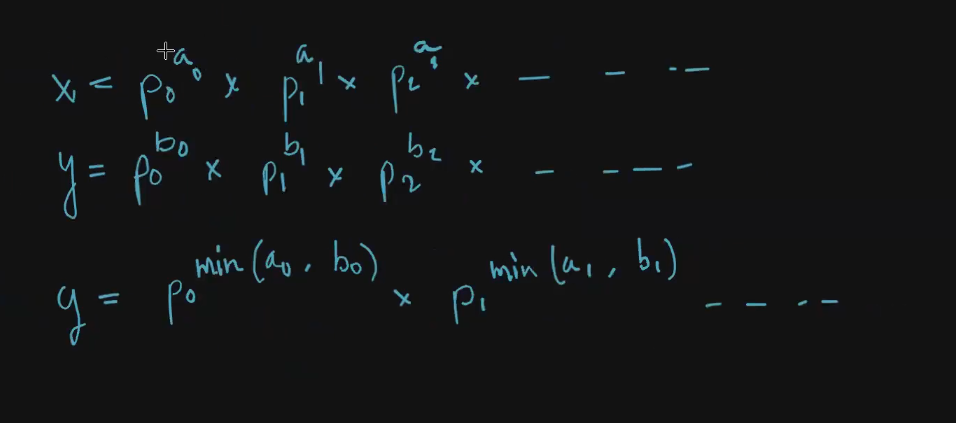 x = p₀^a₀ × p₁^a₁ × p₂^a₂ × — — - —
y = p₀^b₀ × p₁^b₁ × p₂^b₂ × - - — -
g = p₀^min(a₀, b₀) × p₁^min(a₁, b₁) - — - —